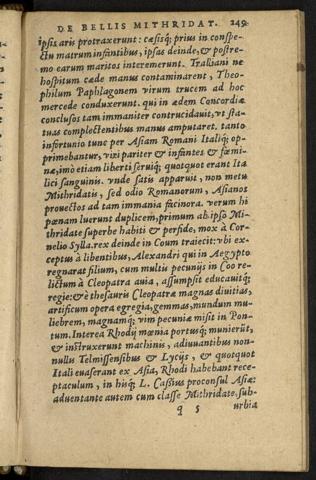 DE BELLIS MITHRIDAT. 249.
ipsis aris protraxerunt: cæsisq́; prius in conspe-
ctu matrum infantibus, ipsas deinde, & postre-
mo earum maritos interemerunt. Tralliani ne
hospitum cæde manus contaminarent, Theo-
philum Paphlagonem virum trucem ad hoc
mercede conduxerunt. qui in ædem Concordiæ
conclusos tam immaniter contrucidauit, vt sta-
tuas complectentibus manus amputaret. tanto
infortunio tunc per Asiam Romani Italiq́; op-
primebantur, viri pariter & infantes & fœmi-
næ, imò etiam liberti seruiq́; quotquot erant Ita
lici sanguinis. vnde satis apparuit, non metu
Mithridatis, sed odio Romanorum, Asianos
prouectos ad tam immania facinora. verum hi
pœnam luerunt duplicem, primum ab ipso Mi-
thridate superbe habiti & perfide, mox à Cor-
nelio Sylla. rex deinde in Coum traiecit: vbi ex-
ceptus à libentibus, Alexandri qui in Aegypto
regnarat filium, cum multis pecunijs in Coo re-
lictum à Cleopatra auia, assumpsit educauitq́;
regiè: & è thesauris Cleopatræ magnas diuitias,
artificum opera egregia, gemmas, mundum mu-
liebrem, magnamq́; vim pecuniæ misit in Pon-
tum. Interea Rhodij mœnia portusq́; munierūt,
& instruxerunt machinis, adiuuantibus non-
nullis Telmissensibus & Lycijs, & quotquot
Itali euaserant ex Asia, Rhodi habebant rece-
ptaculum, in hisq́; L. Cassius proconsul Asiæ:
aduentante autem cum classe Mithridate, sub-
q 5 urbia